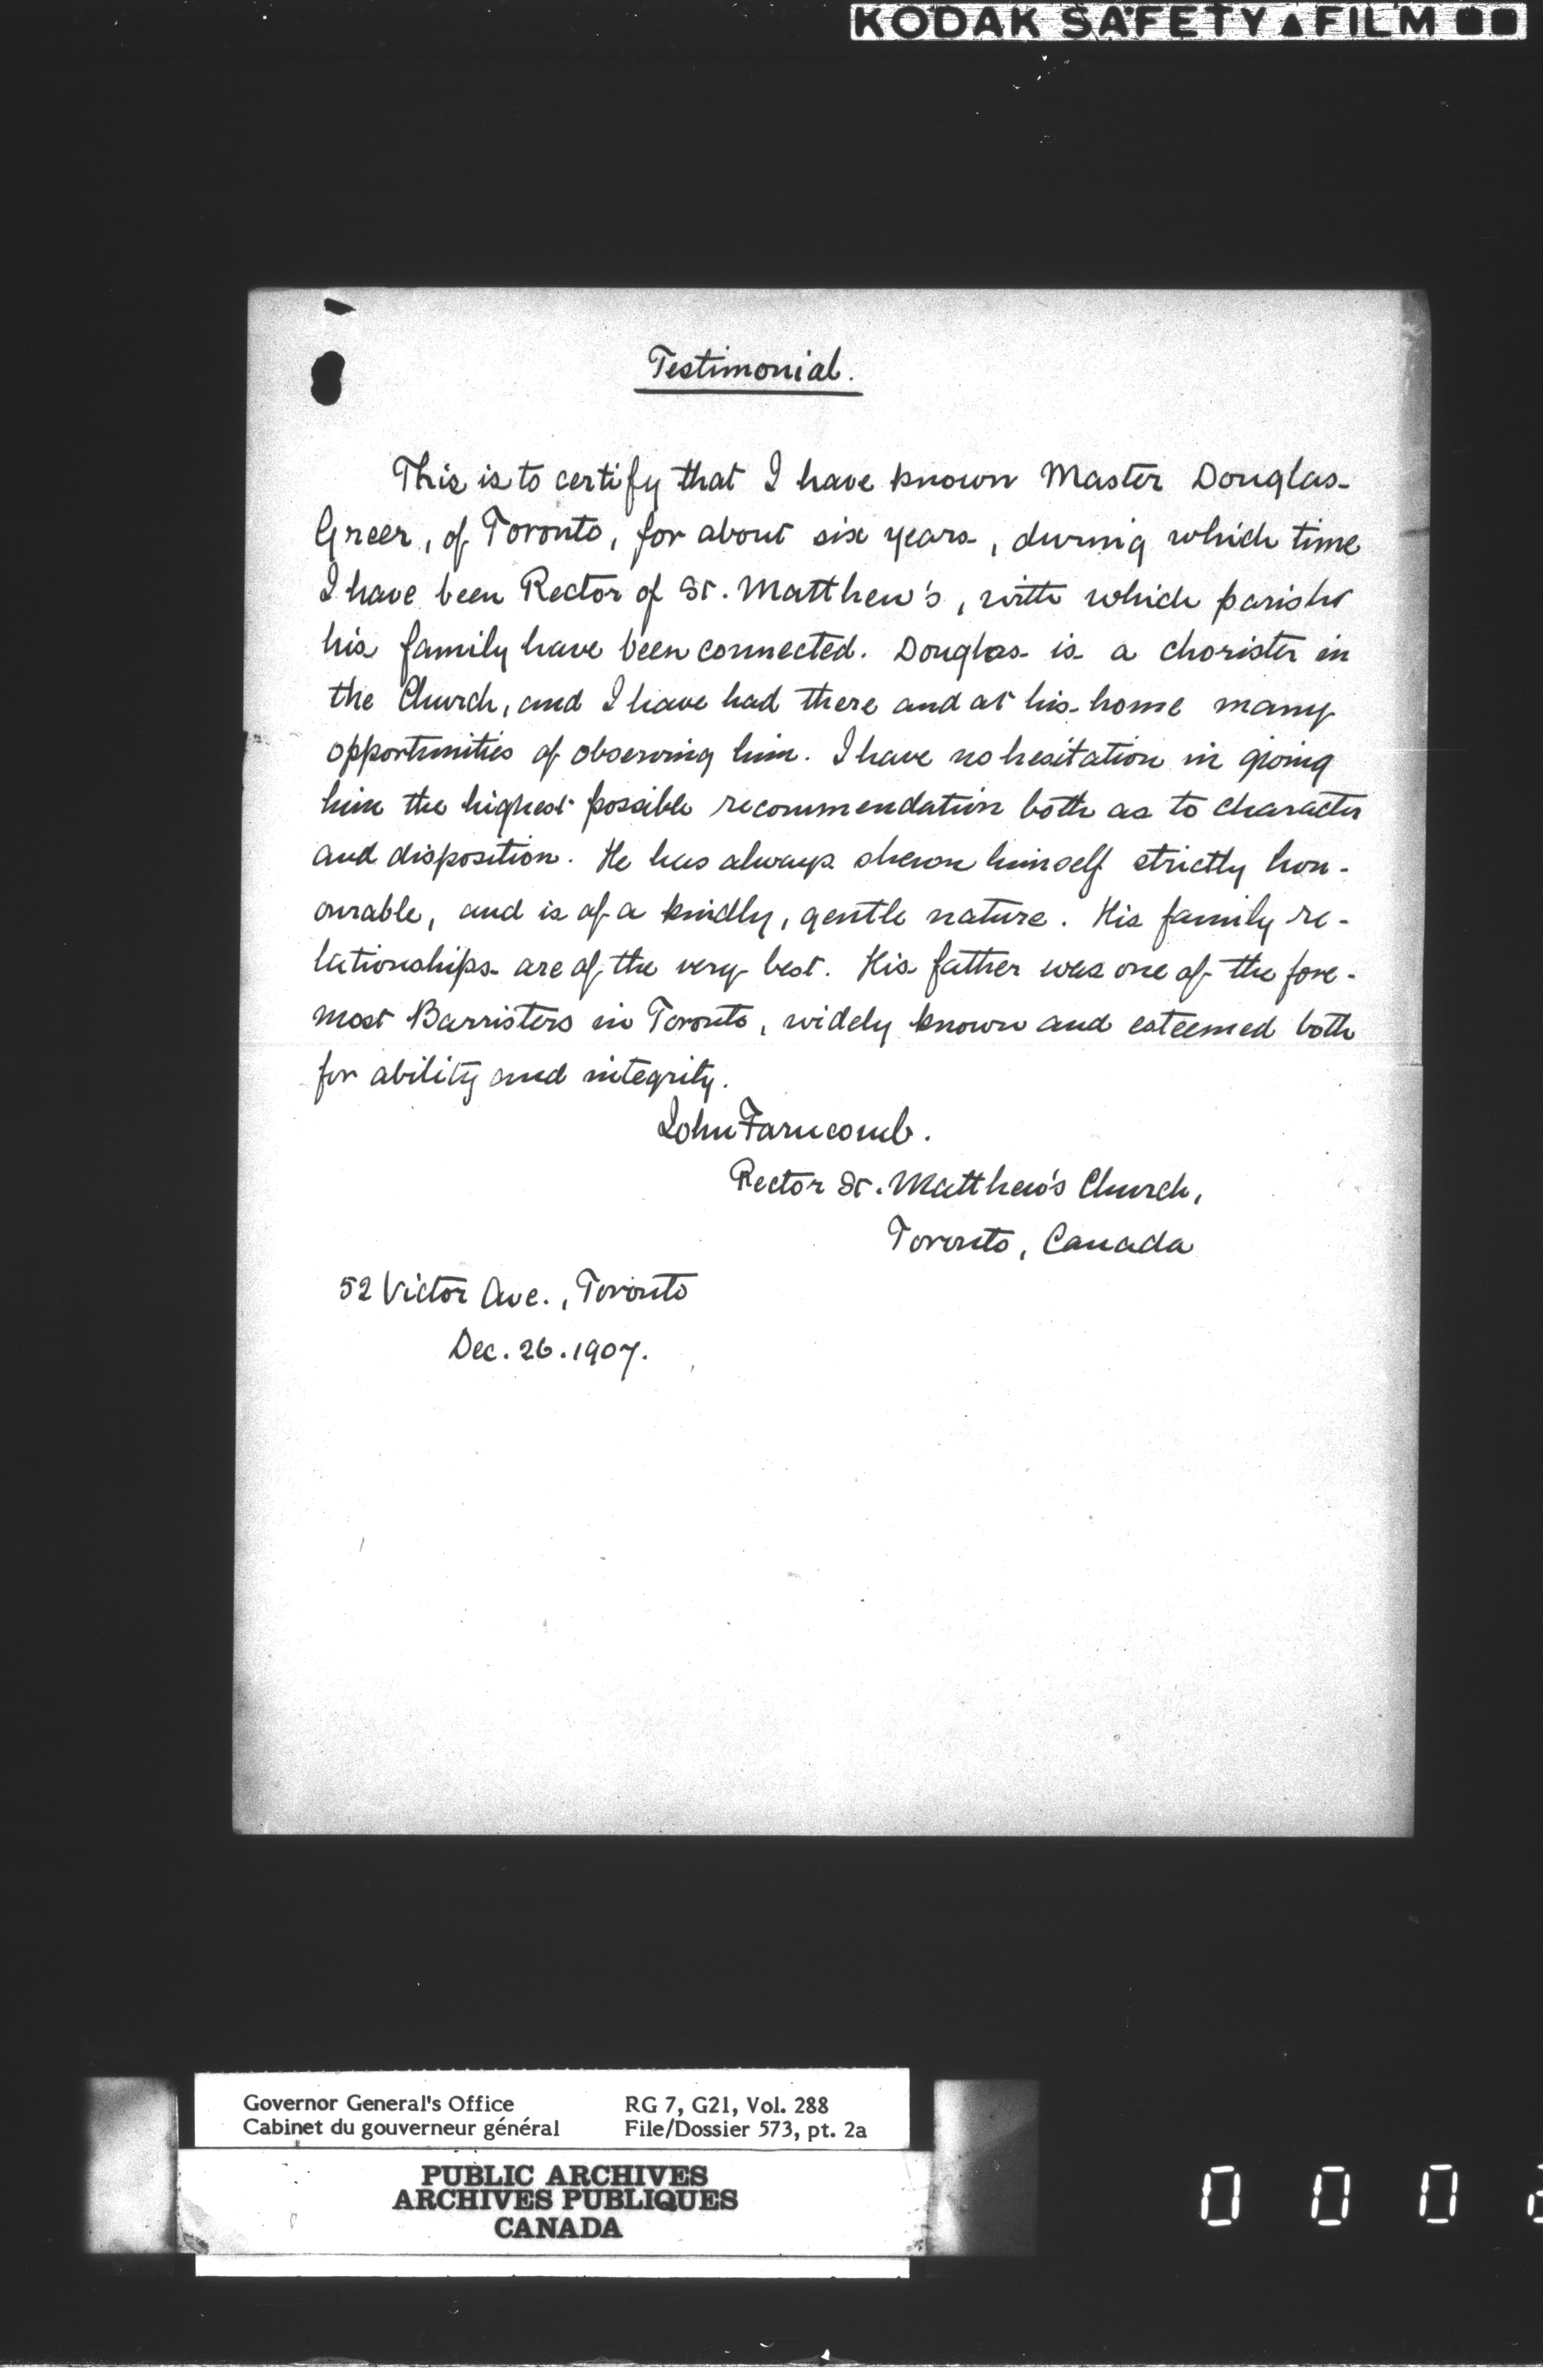 KODAK SAFETY▲FILM
Testimonial.
This is to certify that I have known Master Douglas
Greer, of Toronto, for about six years, during which time
I have been Rector of St. Matthew's, with which parish
his family have been connected. Douglas is a chorister in
the Church, and I have had there and at his home many
opportunities of observing him. I have no hesitation in giving
him the highest possible recommendation both as to character
and disposition. He has always shewn himself strictly hon-
ourable, and is of a kindly, gentle nature. His family re-
lationships are of the very best. His father was one of the fore-
most Barristers in Toronto, widely known and esteemed both
for ability and integrity.
John Farncomb.
Rector St. Matthew's Church,
Toronto, Canada
52 Victor Ave., Toronto
Dec. 26. 1907.
Governor General's Office RG 7, G21, Vol. 288
Cabinet du gouverneur général File/Dossier 573, pt. 2a
PUBLIC ARCHIVES
ARCHIVES PUBLIQUES
CANADA
0 0 0